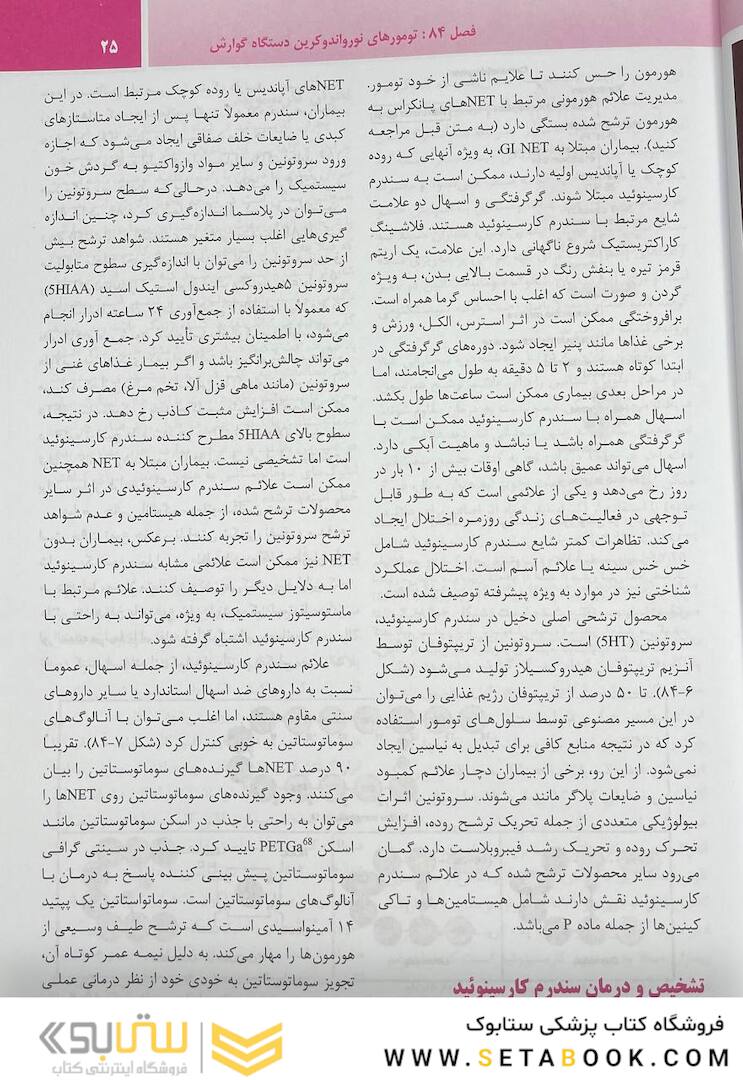 فصل ۸۴: تومورهای نورواندوکرین دستگاه گوارش
۲۵
هورمون را حس کنند تا علایم ناشی از خود تومور.
مدیریت علائم هورمونی مرتبط با NETهای پانکراس به
هورمون ترشح شده بستگی دارد (به متن قبل مراجعه
کنید). بیماران مبتلا به GI NET، به ویژه آنهایی که روده
کوچک یا آپاندیس اولیه دارند، ممکن است به سندرم
کارسینوئید مبتلا شوند. گرگرفتگی و اسهال دو علامت
شایع مرتبط با سندرم کارسینوئید هستند. فلاشینگ
کاراکتریستیک شروع ناگهانی دارد. این علامت، یک اریتم
قرمز تیره یا بنفش رنگ در قسمت بالایی بدن، به ویژه
گردن و صورت است که اغلب با احساس گرما همراه است.
برافروختگی ممکن است در اثر استرس، الکل، ورزش و
برخی غذاها مانند پنیر ایجاد شود. دوره‌های گرگرفتگی در
ابتدا کوتاه هستند و ۲ تا ۵ دقیقه به طول می‌انجامند، اما
در مراحل بعدی بیماری ممکن است ساعت‌ها طول بکشد.
اسهال همراه با سندرم کارسینوئید ممکن است با
گرگرفتگی همراه باشد یا نباشد و ماهیت آبکی دارد.
اسهال می‌تواند عمیق باشد، گاهی اوقات بیش از ۱۰ بار در
روز رخ می‌دهد و یکی از علائمی است که به طور قابل
توجهی در فعالیت‌های زندگی روزمره اختلال ایجاد
می‌کند. تظاهرات کمتر شایع سندرم کارسینوئید شامل
خس خس سینه یا علائم آسم است. اختلال عملکرد
شناختی نیز در موارد به ویژه پیشرفته توصیف شده است.
محصول ترشحی اصلی دخیل در سندرم کارسینوئید،
سروتونین (5HT) است. سروتونین از تریپتوفان توسط
آنزیم تریپتوفان هیدروکسیلاز تولید می‌شود (شکل
۶-۸۴). تا ۵۰ درصد از تریپتوفان رژیم غذایی را می‌توان
در این مسیر مصنوعی توسط سلول‌های تومور استفاده
کرد که در نتیجه منابع کافی برای تبدیل به نیاسین ایجاد
نمی‌شود. از این رو، برخی از بیماران دچار علائم کمبود
نیاسین و ضایعات پلاگر مانند می‌شوند. سروتونین اثرات
بیولوژیکی متعددی از جمله تحریک ترشح روده، افزایش
تحرک روده و تحریک رشد فیبروبلاست دارد. گمان
می‌رود سایر محصولات ترشح شده که در علائم سندرم
کارسینوئید نقش دارند شامل هیستامین‌ها و تاکی
کینین‌ها از جمله ماده P می‌باشد.
تشخیص و درمان سندرم کارسینوئید
NETهای آپاندیس یا روده کوچک مرتبط است. در این
بیماران، سندرم معمولاً تنها پس از ایجاد متاستازهای
کبدی یا ضایعات خلف صفاقی ایجاد می‌شود که اجازه
ورود سروتونین و سایر مواد وازواکتیو به گردش خون
سیستمیک را می‌دهد. درحالی‌که سطح سروتونین را
می‌توان در پلاسما اندازه‌گیری کرد، چنین اندازه
گیری‌هایی اغلب بسیار متغیر هستند. شواهد ترشح بیش
از حد سروتونین را می‌توان با اندازه‌گیری سطوح متابولیت
سروتونین ۵هیدروکسی ایندول استیک اسید (5HIAA)
که معمولا با استفاده از جمع‌آوری ۲۴ ساعته ادرار انجام
می‌شود، با اطمینان بیشتری تأیید کرد. جمع آوری ادرار
می‌تواند چالش‌برانگیز باشد و اگر بیمار غذاهای غنی از
سروتونین (مانند ماهی قزل آلا، تخم مرغ) مصرف کند،
ممکن است افزایش مثبت کاذب رخ دهد. در نتیجه،
سطوح بالای 5HIAA مطرح کننده سندرم کارسینوئید
است اما تشخیصی نیست. بیماران مبتلا به NET همچنین
ممکن است علائم سندرم کارسینوئیدی در اثر سایر
محصولات ترشح شده، از جمله هیستامین و عدم شواهد
ترشح سروتونین را تجربه کنند. برعکس، بیماران بدون
NET نیز ممکن است علائمی مشابه سندرم کارسینوئید
اما به دلایل دیگر را توصیف کنند. علائم مرتبط با
ماستوسیتوز سیستمیک، به ویژه، می‌تواند به راحتی با
سندرم کارسینوئید اشتباه گرفته شود.
علائم سندرم کارسینوئید، از جمله اسهال، عموما
نسبت به داروهای ضد اسهال استاندارد یا سایر داروهای
سنتی مقاوم هستند، اما اغلب می‌توان با آنالوگ‌های
سوماتوستاتین به خوبی کنترل کرد (شکل ۷-۸۴). تقریبا
۹۰ درصد NETها گیرنده‌های سوماتوستاتین را بیان
می‌کنند. وجود گیرنده‌های سوماتوستاتین روی NETها را
می‌توان به راحتی با جذب در اسکن سوماتوستاتین مانند
اسکن PETGa⁶⁸ تایید کرد. جذب در سینتی گرافی
سوماتوستاتین پیش بینی کننده پاسخ به درمان با
آنالوگ‌های سوماتوستاتین است. سوماتواستاتین یک پپتید
۱۴ آمینواسیدی است که ترشح طیف وسیعی از
هورمون‌ها را مهار می‌کند. به دلیل نیمه عمر کوتاه آن،
تجویز سوماتوستاتین به خودی خود از نظر درمانی عملی
فروشگاه کتاب پزشکی ستابوک
WWW.SETABOOK.COM
ستابوک
فروشگاه اینترنتی کتاب